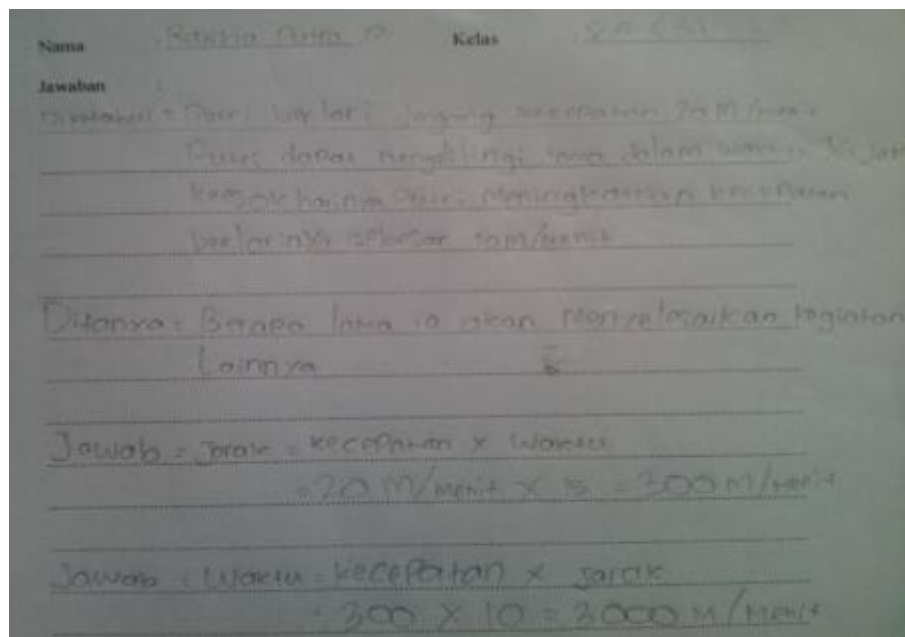 Nama : Putra P Kelas :
Jawaban :
= Putri lari jogging kecepatan 20 M/menit
Putri dapat mengelilingi dalam
harinya Putri meningkatkan kecepatan
berlarinya sebesar 10m/menit
Ditanya : Berapa lama ia akan Menyelesaikan kegiatan
Lainnya
Jawab = Jarak = kecepatan x Waktu
= 20 M/menit x 15 = 300 M/menit
Jawab = Waktu = kecepatan x Jarak
= 300 x 10 = 3000 M/Menit